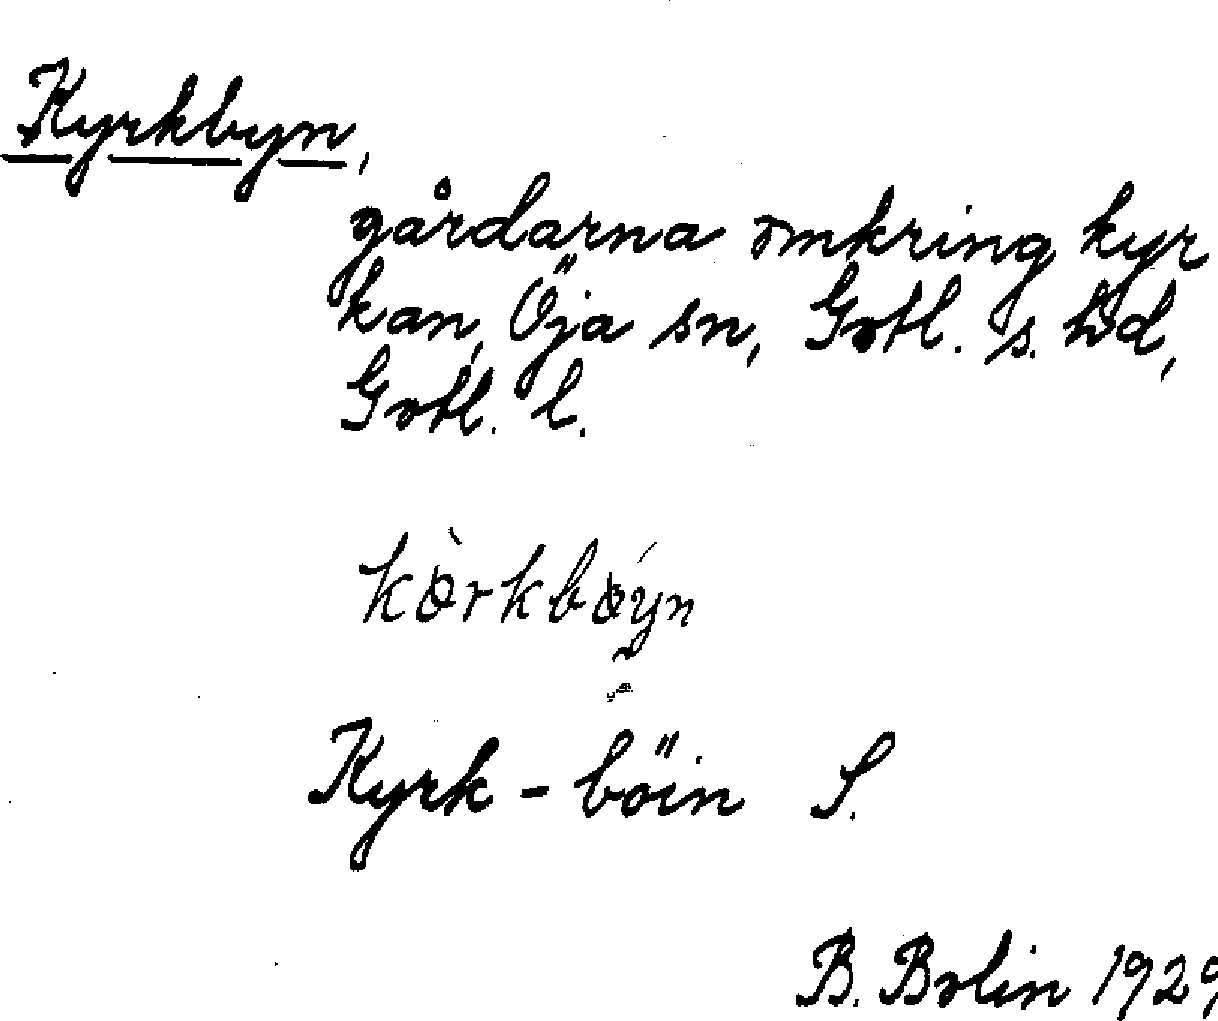 Kyrkbyn,
gårdarna omkring kyr
kan, Öja sn, Gotl. s. hd,
Gotl. l.
Kyrk-böin S.
B. Bolin 1929